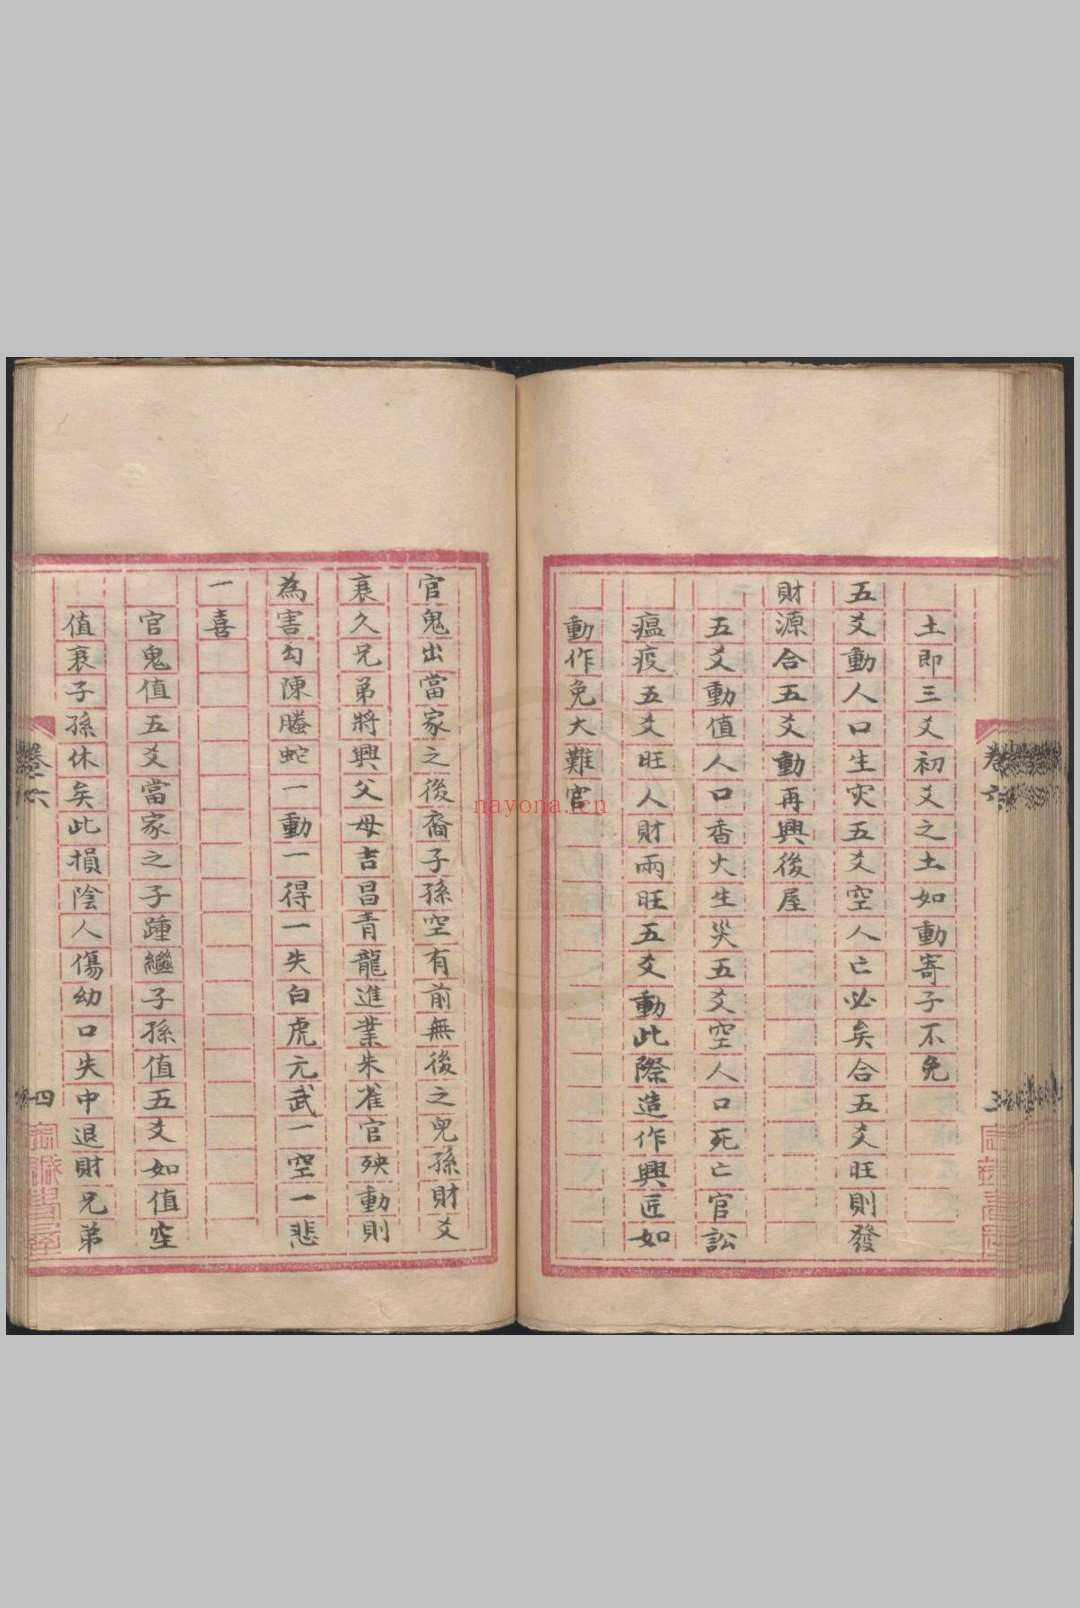 土即三爻初爻之土如動寄子不免
五爻動人口生灾五爻空人亡必矣合五爻旺則發
財源合五爻動再興後屋
五爻動值人口香火生災五爻空人口死亡官訟
瘟疫五爻旺人財兩旺五爻動此際造作興匠如
動作免大難官
卷六
三
官鬼出當家之後裔子孫空有前無後之兒孫財爻
衰久兄弟將興父母吉昌青龍進業朱雀官殃動則
為害勾陳螣蛇一動一得一失白虎元武一空一悲
一喜
官鬼值五爻當家之子踵繼子孫值五爻如值空
值衰子孫休矣此損陰人傷幼口失中退財兄弟
卷六
四
nayona.cn